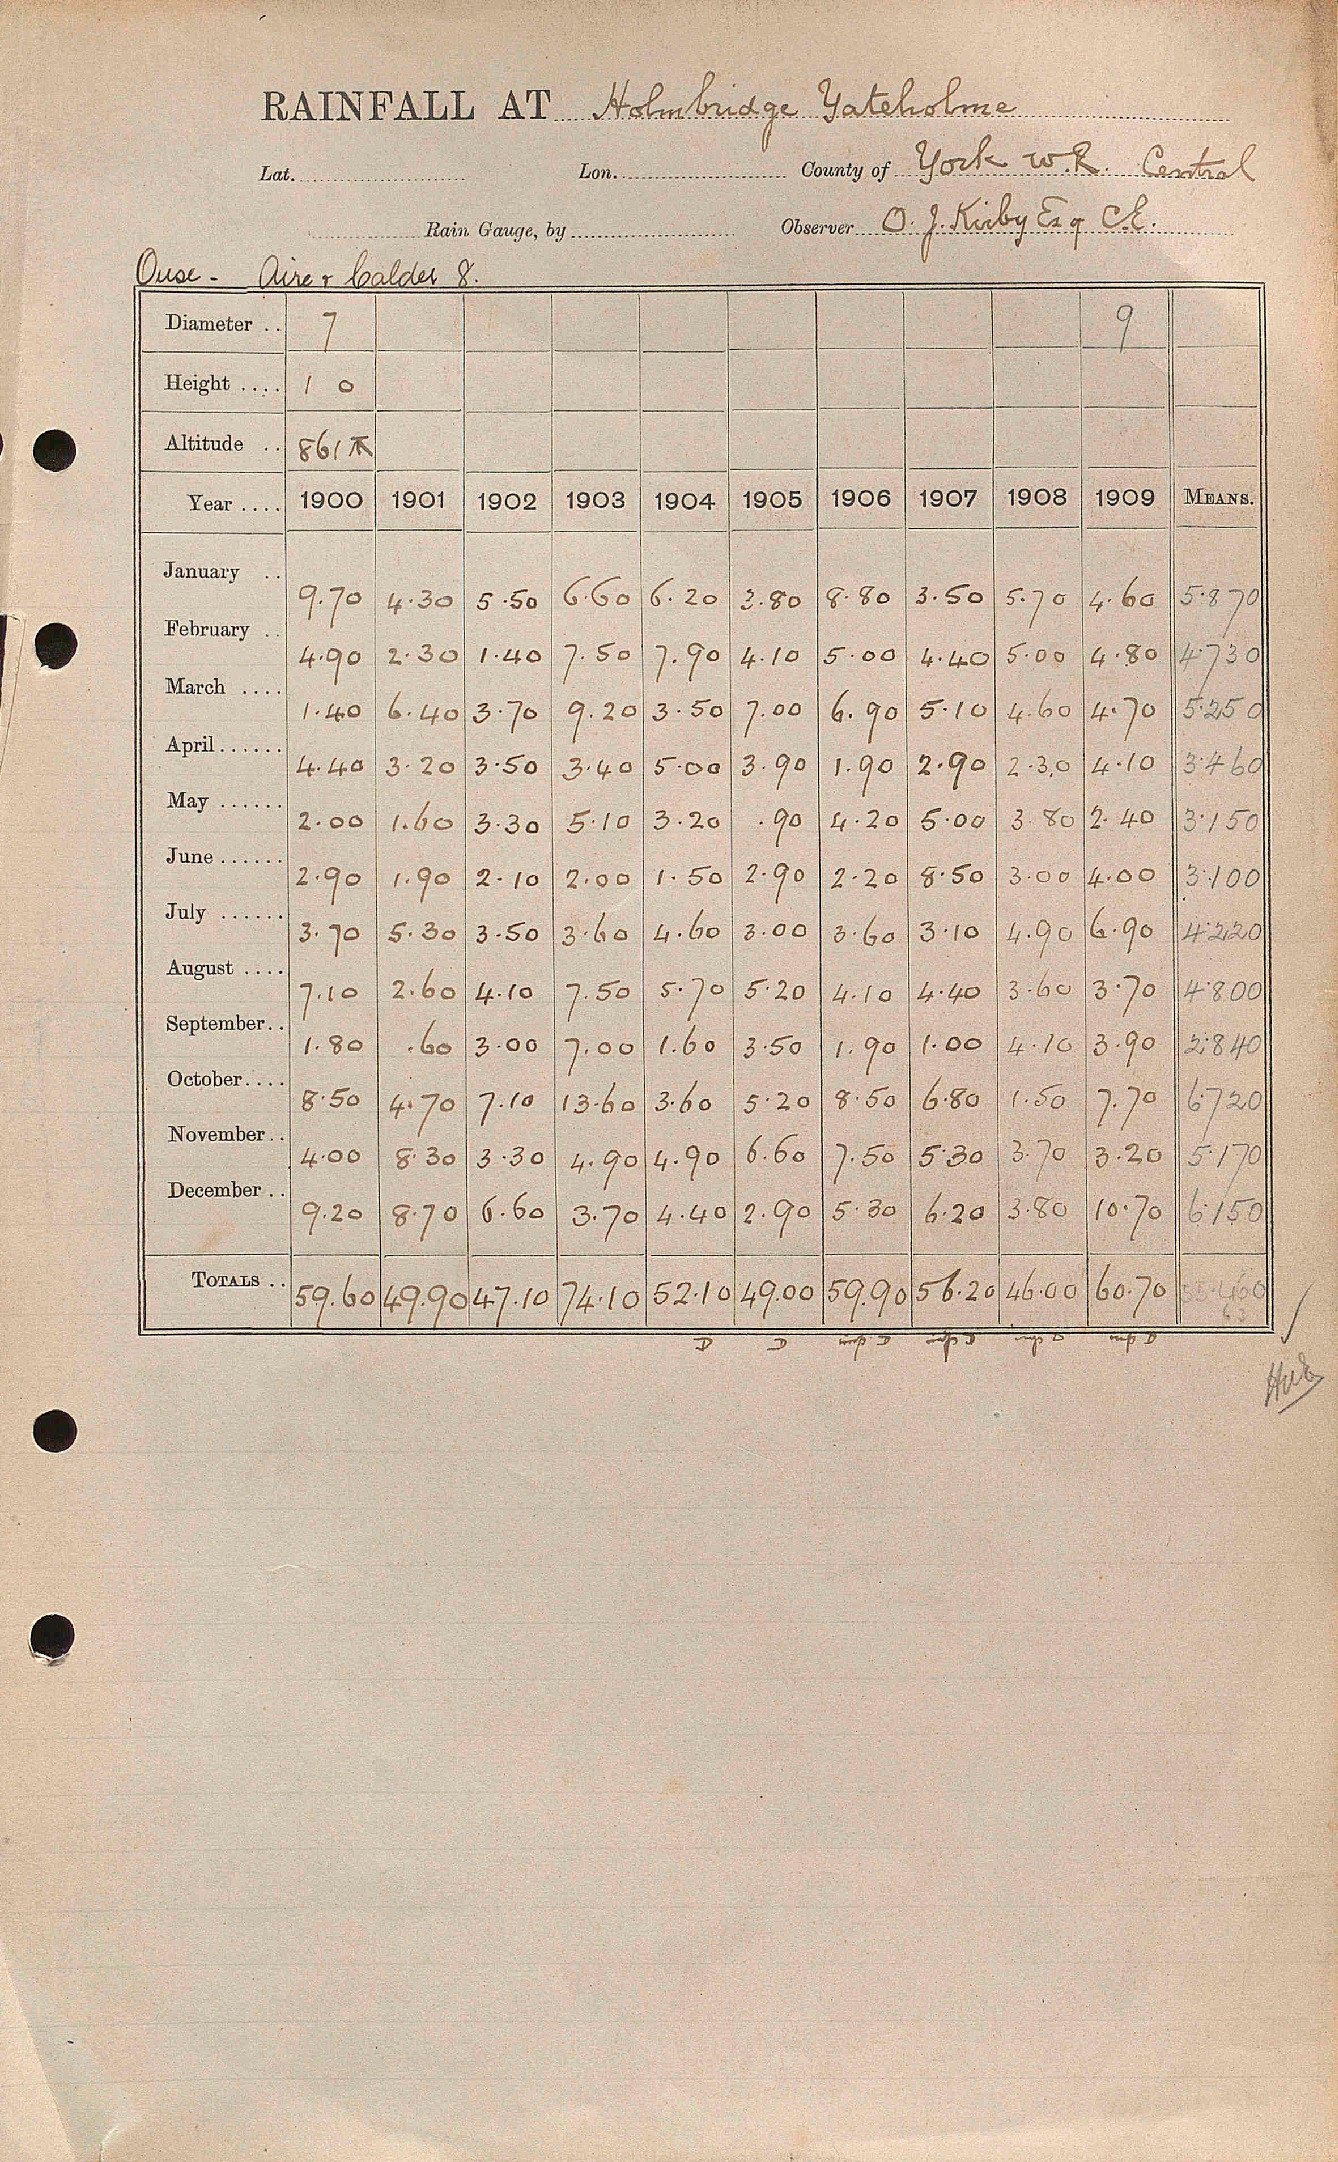 RAINFALL AT Holmbridge Yateholme
Lat. Lon. County of York W.R. Central
Rain Gauge, by Observer O. J. Kirby Esq C.E.
Ouse - Aire & Calder 8.
Diameter .. 7 9
Height .... 1 0
Altitude .. 861
Year .... 1900 1901 1902 1903 1904 1905 1906 1907 1908 1909 MEANS.
January .. 9.70 4.30 5.50 6.60 6.20 3.80 8.80 3.50 5.70 4.60 5.870
February .. 4.90 2.30 1.40 7.50 7.90 4.10 5.00 4.40 5.00 4.80 4.730
March .... 1.40 6.40 3.70 9.20 3.50 7.00 6.90 5.10 4.60 4.70 5.250
April ...... 4.40 3.20 3.50 3.40 5.00 3.90 1.90 2.90 2.30 4.10 3.460
May ...... 2.00 1.60 3.30 5.10 3.20 .90 4.20 5.00 3.80 2.40 3.150
June ...... 2.90 1.90 2.10 2.00 1.50 2.90 2.20 8.50 3.00 4.00 3.100
July ...... 3.70 5.30 3.50 3.60 4.60 3.00 3.60 3.10 4.90 6.90 4.220
August .... 7.10 2.60 4.10 7.50 5.70 5.20 4.10 4.40 3.60 3.70 4.800
September.. 1.80 .60 3.00 7.00 1.60 3.50 1.90 1.00 4.10 3.90 2.840
October.... 8.50 4.70 7.10 13.60 3.60 5.20 8.50 6.80 1.50 7.70 6.720
November.. 4.00 8.30 3.30 4.90 4.90 6.60 7.50 5.30 3.70 3.20 5.170
December .. 9.20 8.70 6.60 3.70 4.40 2.90 5.30 6.20 3.80 10.70 6.150
TOTALS .. 59.60 49.90 47.10 74.10 52.10 49.00 59.90 56.20 46.00 60.70 55.460
D D D D D D